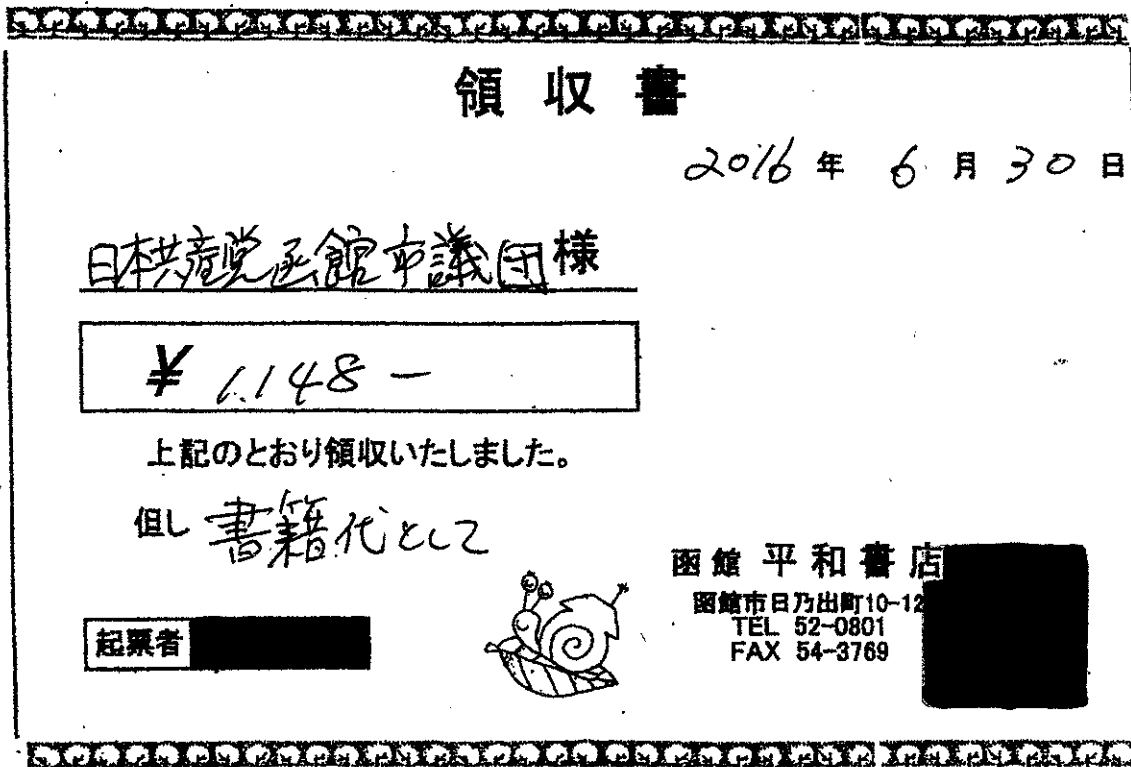 領収書
2016年 6月30日
日本共産党函館市議団様
¥ 1.148-
上記のとおり領収いたしました。
但し 書籍代として
函館 平和書店
函館市日乃出町10-12
TEL 52-0801
FAX 54-3769
起票者